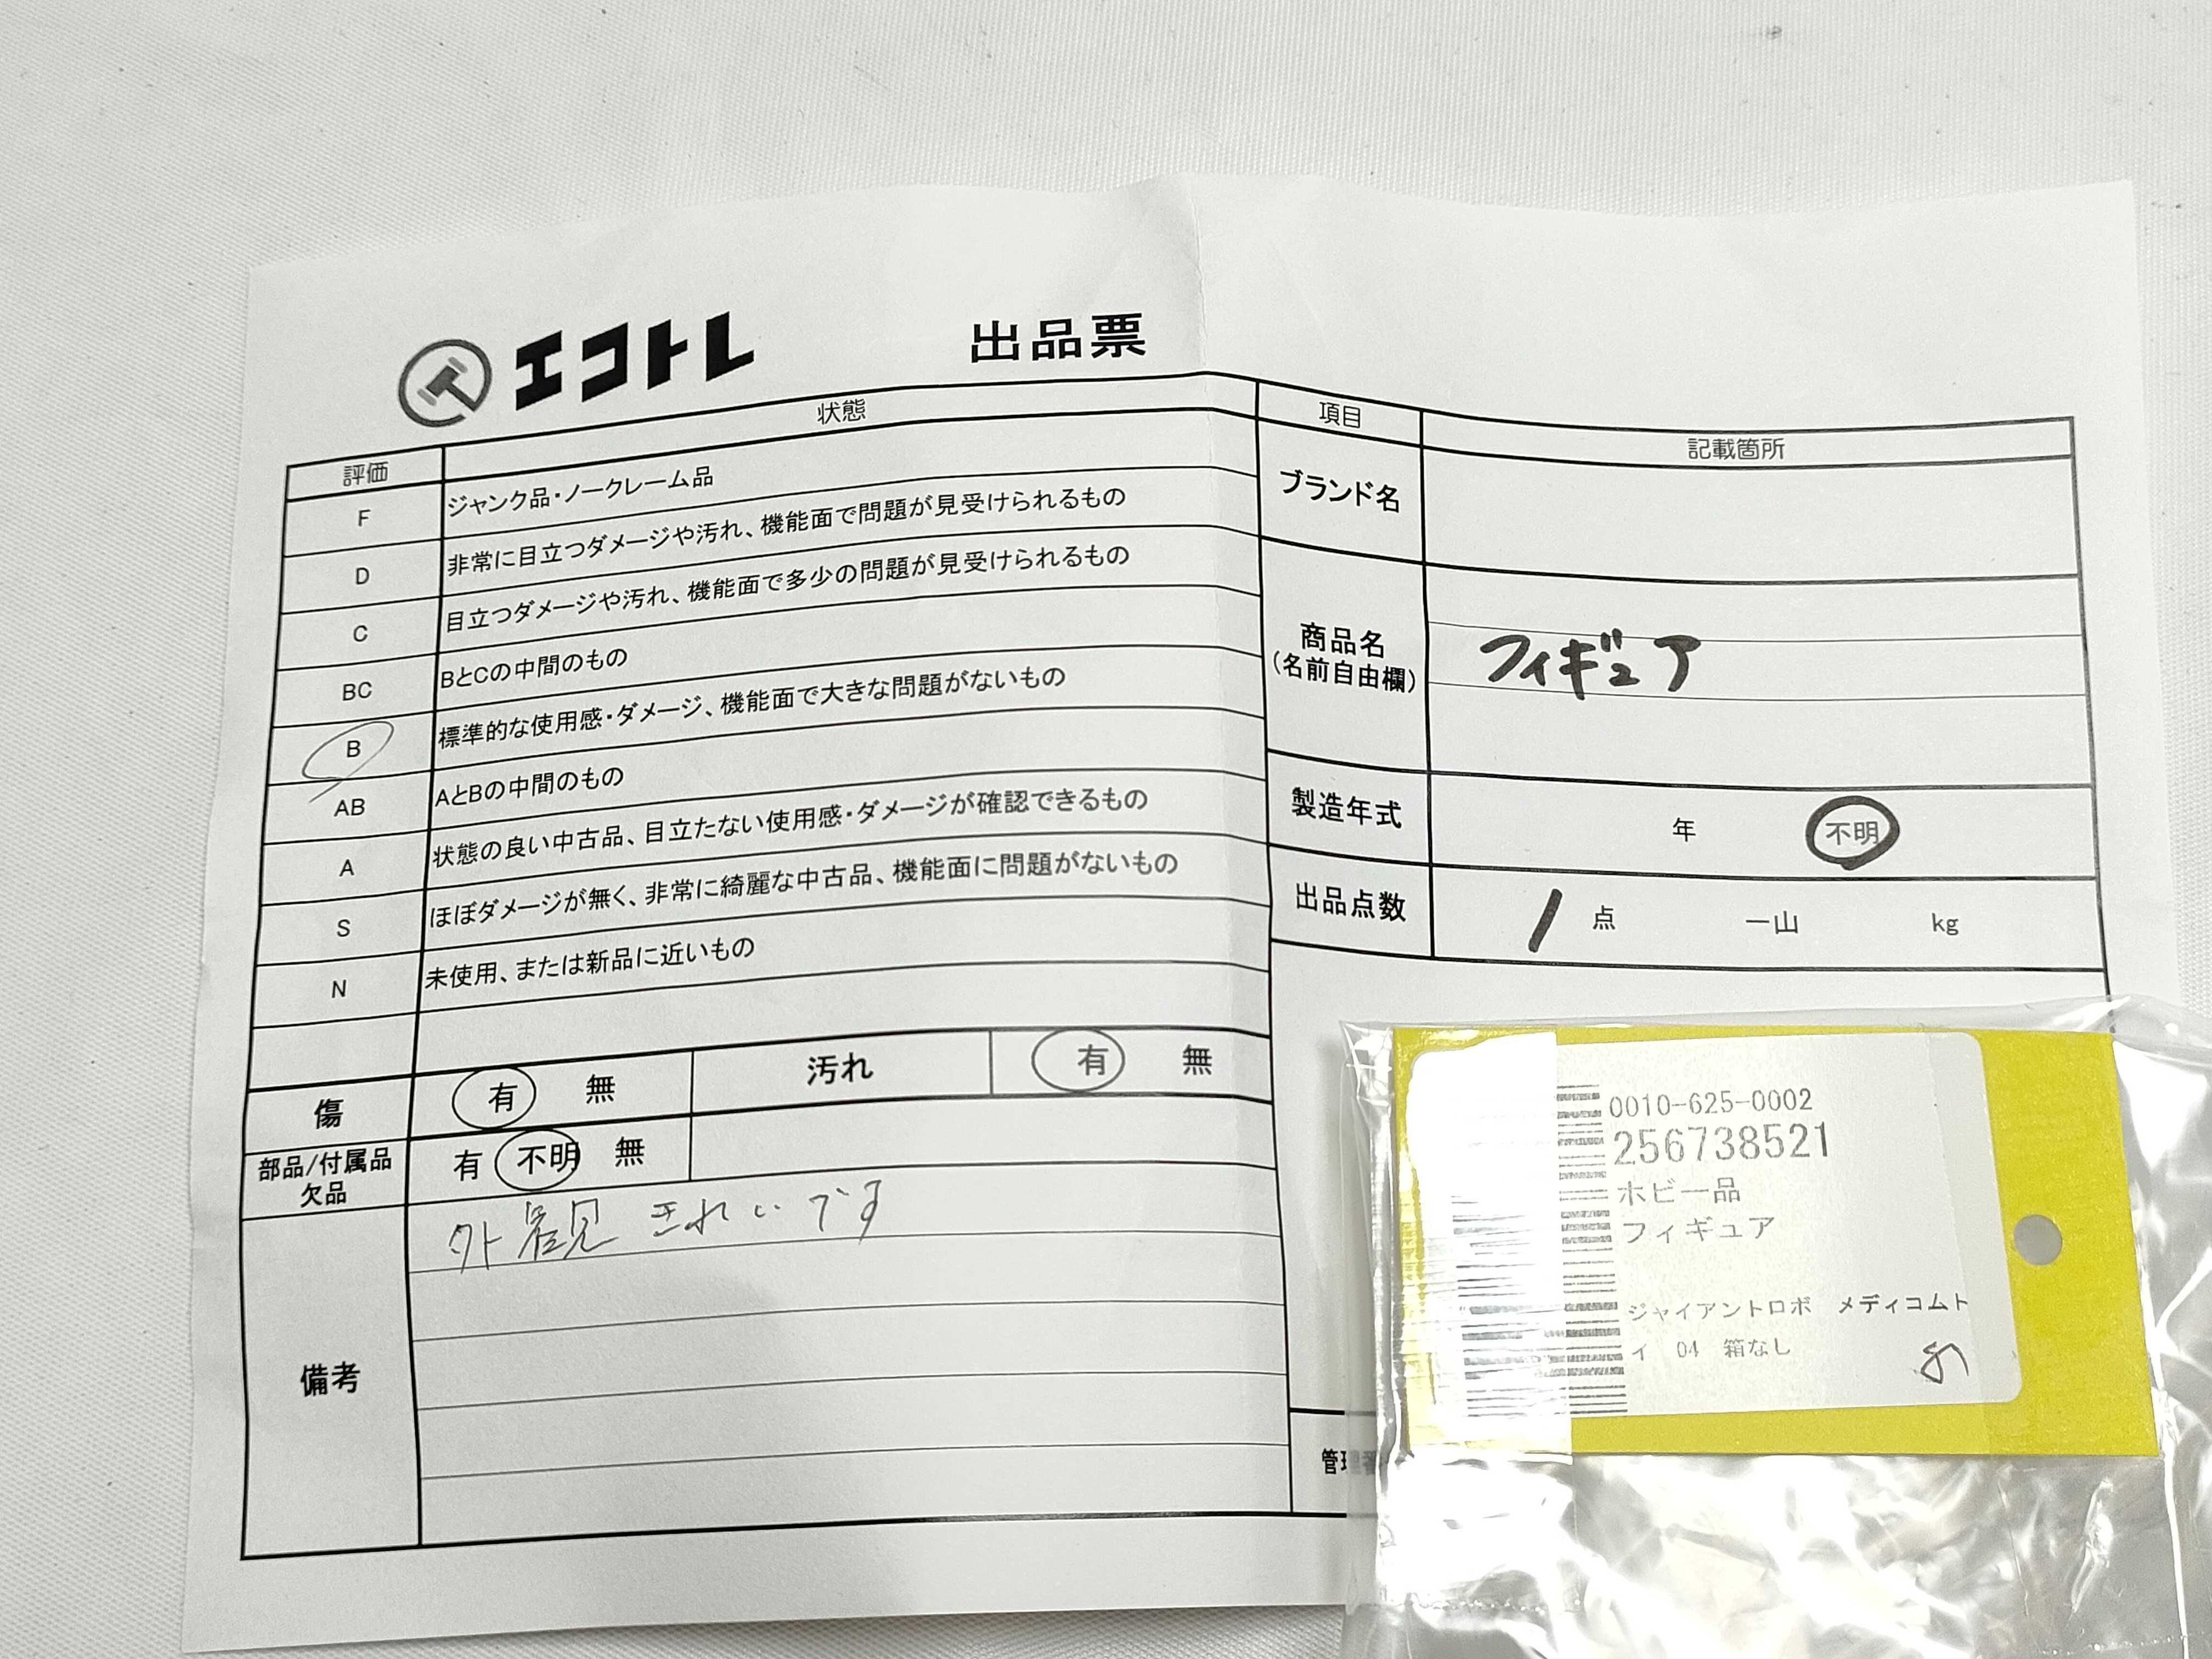 エコトレ
出品票
評価 状態
F ジャンク品・ノークレーム品
D 非常に目立つダメージや汚れ、機能面で問題が見受けられるもの
C 目立つダメージや汚れ、機能面で多少の問題が見受けられるもの
BC BとCの中間のもの
B 標準的な使用感・ダメージ、機能面で大きな問題がないもの
AB AとBの中間のもの
A 状態の良い中古品、目立たない使用感・ダメージが確認できるもの
S ほぼダメージが無く、非常に綺麗な中古品、機能面に問題がないもの
N 未使用、または新品に近いもの
傷 有 無 汚れ 有 無
部品/付属品
欠品
有 不明 無
備考
外観 きれいです
項目 記載箇所
ブランド名
商品名
(名前自由欄)
フィギュア
製造年式 年 不明
出品点数 1 点 一山 kg
管理
0010-625-0002
256738521
ホビー品
フィギュア
ジャイアントロボ メディコムト
イ 04 箱なし